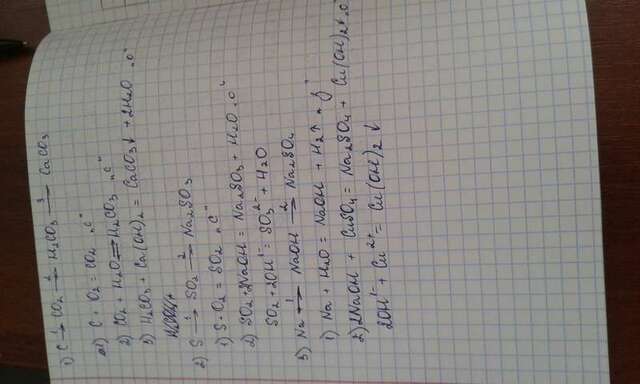 1) C →¹ CO₂ →² H₂CO₃ →³ CaCO₃
1) C + O₂ = CO₂ "С"
2) CO₂ + H₂O ⇌ H₂CO₃ "С"
3) H₂CO₃ + Ca(OH)₂ = CaCO₃↓ + 2H₂O "О"
2) S →¹ SO₂ →² Na₂SO₃
1) S + O₂ = SO₂ "С"
2) SO₂ + 2NaOH = Na₂SO₃ + H₂O "О"
SO₂ + 2OH¹⁻ = SO₃²⁻ + H₂O
3) Na →¹ NaOH →² Na₂SO₄
1) Na + H₂O = NaOH + H₂↑ "З"
2) 2NaOH + CuSO₄ = Na₂SO₄ + Cu(OH)₂↓ "О"
2OH¹⁻ + Cu²⁺ = Cu(OH)₂↓